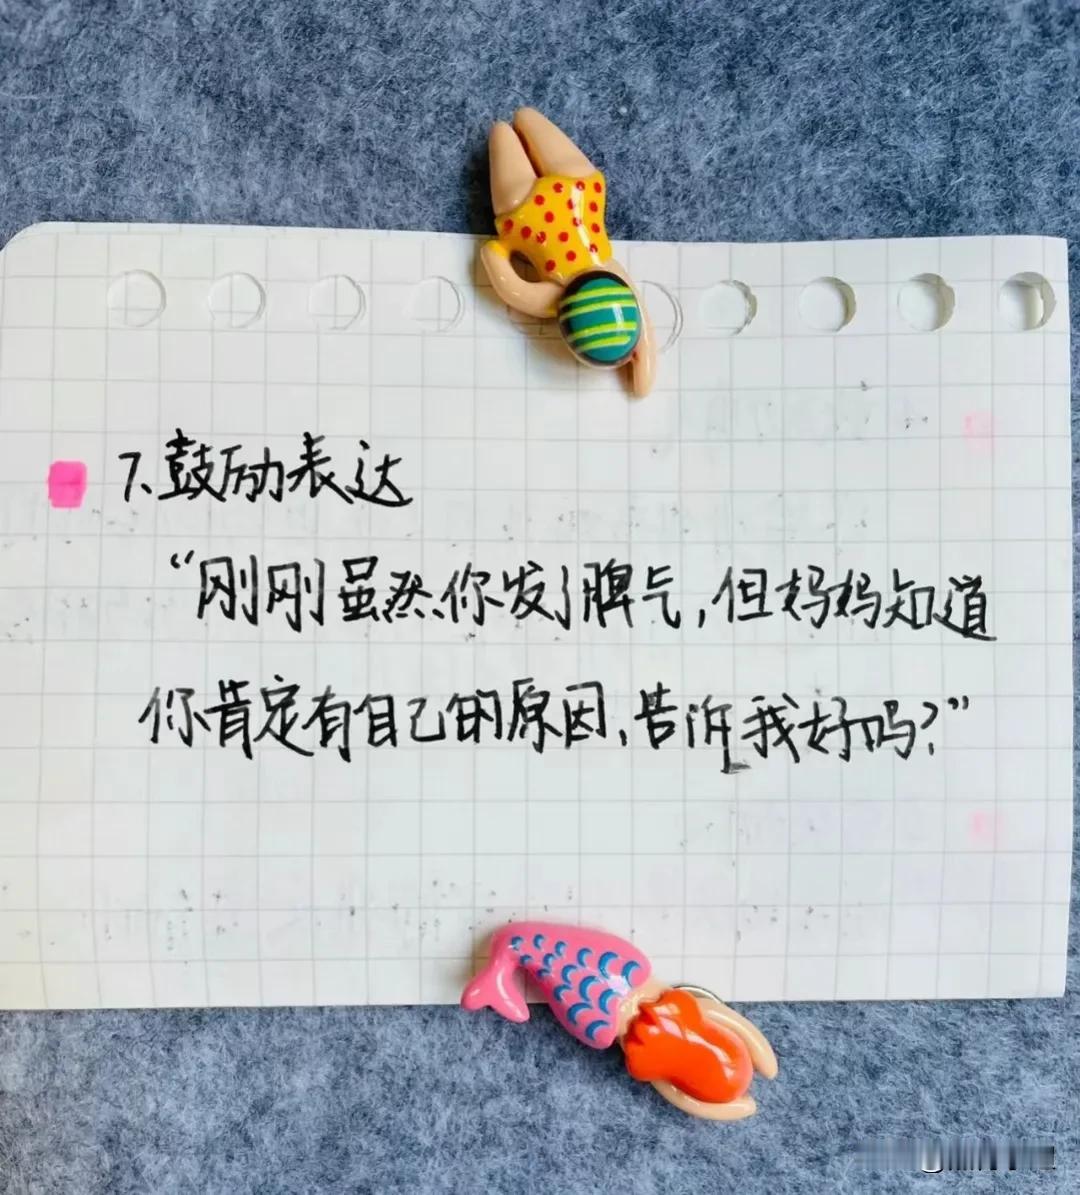 7.鼓励表达
“刚刚虽然你发了脾气,但妈妈知道
你肯定有自己的原因,告诉我好吗?”